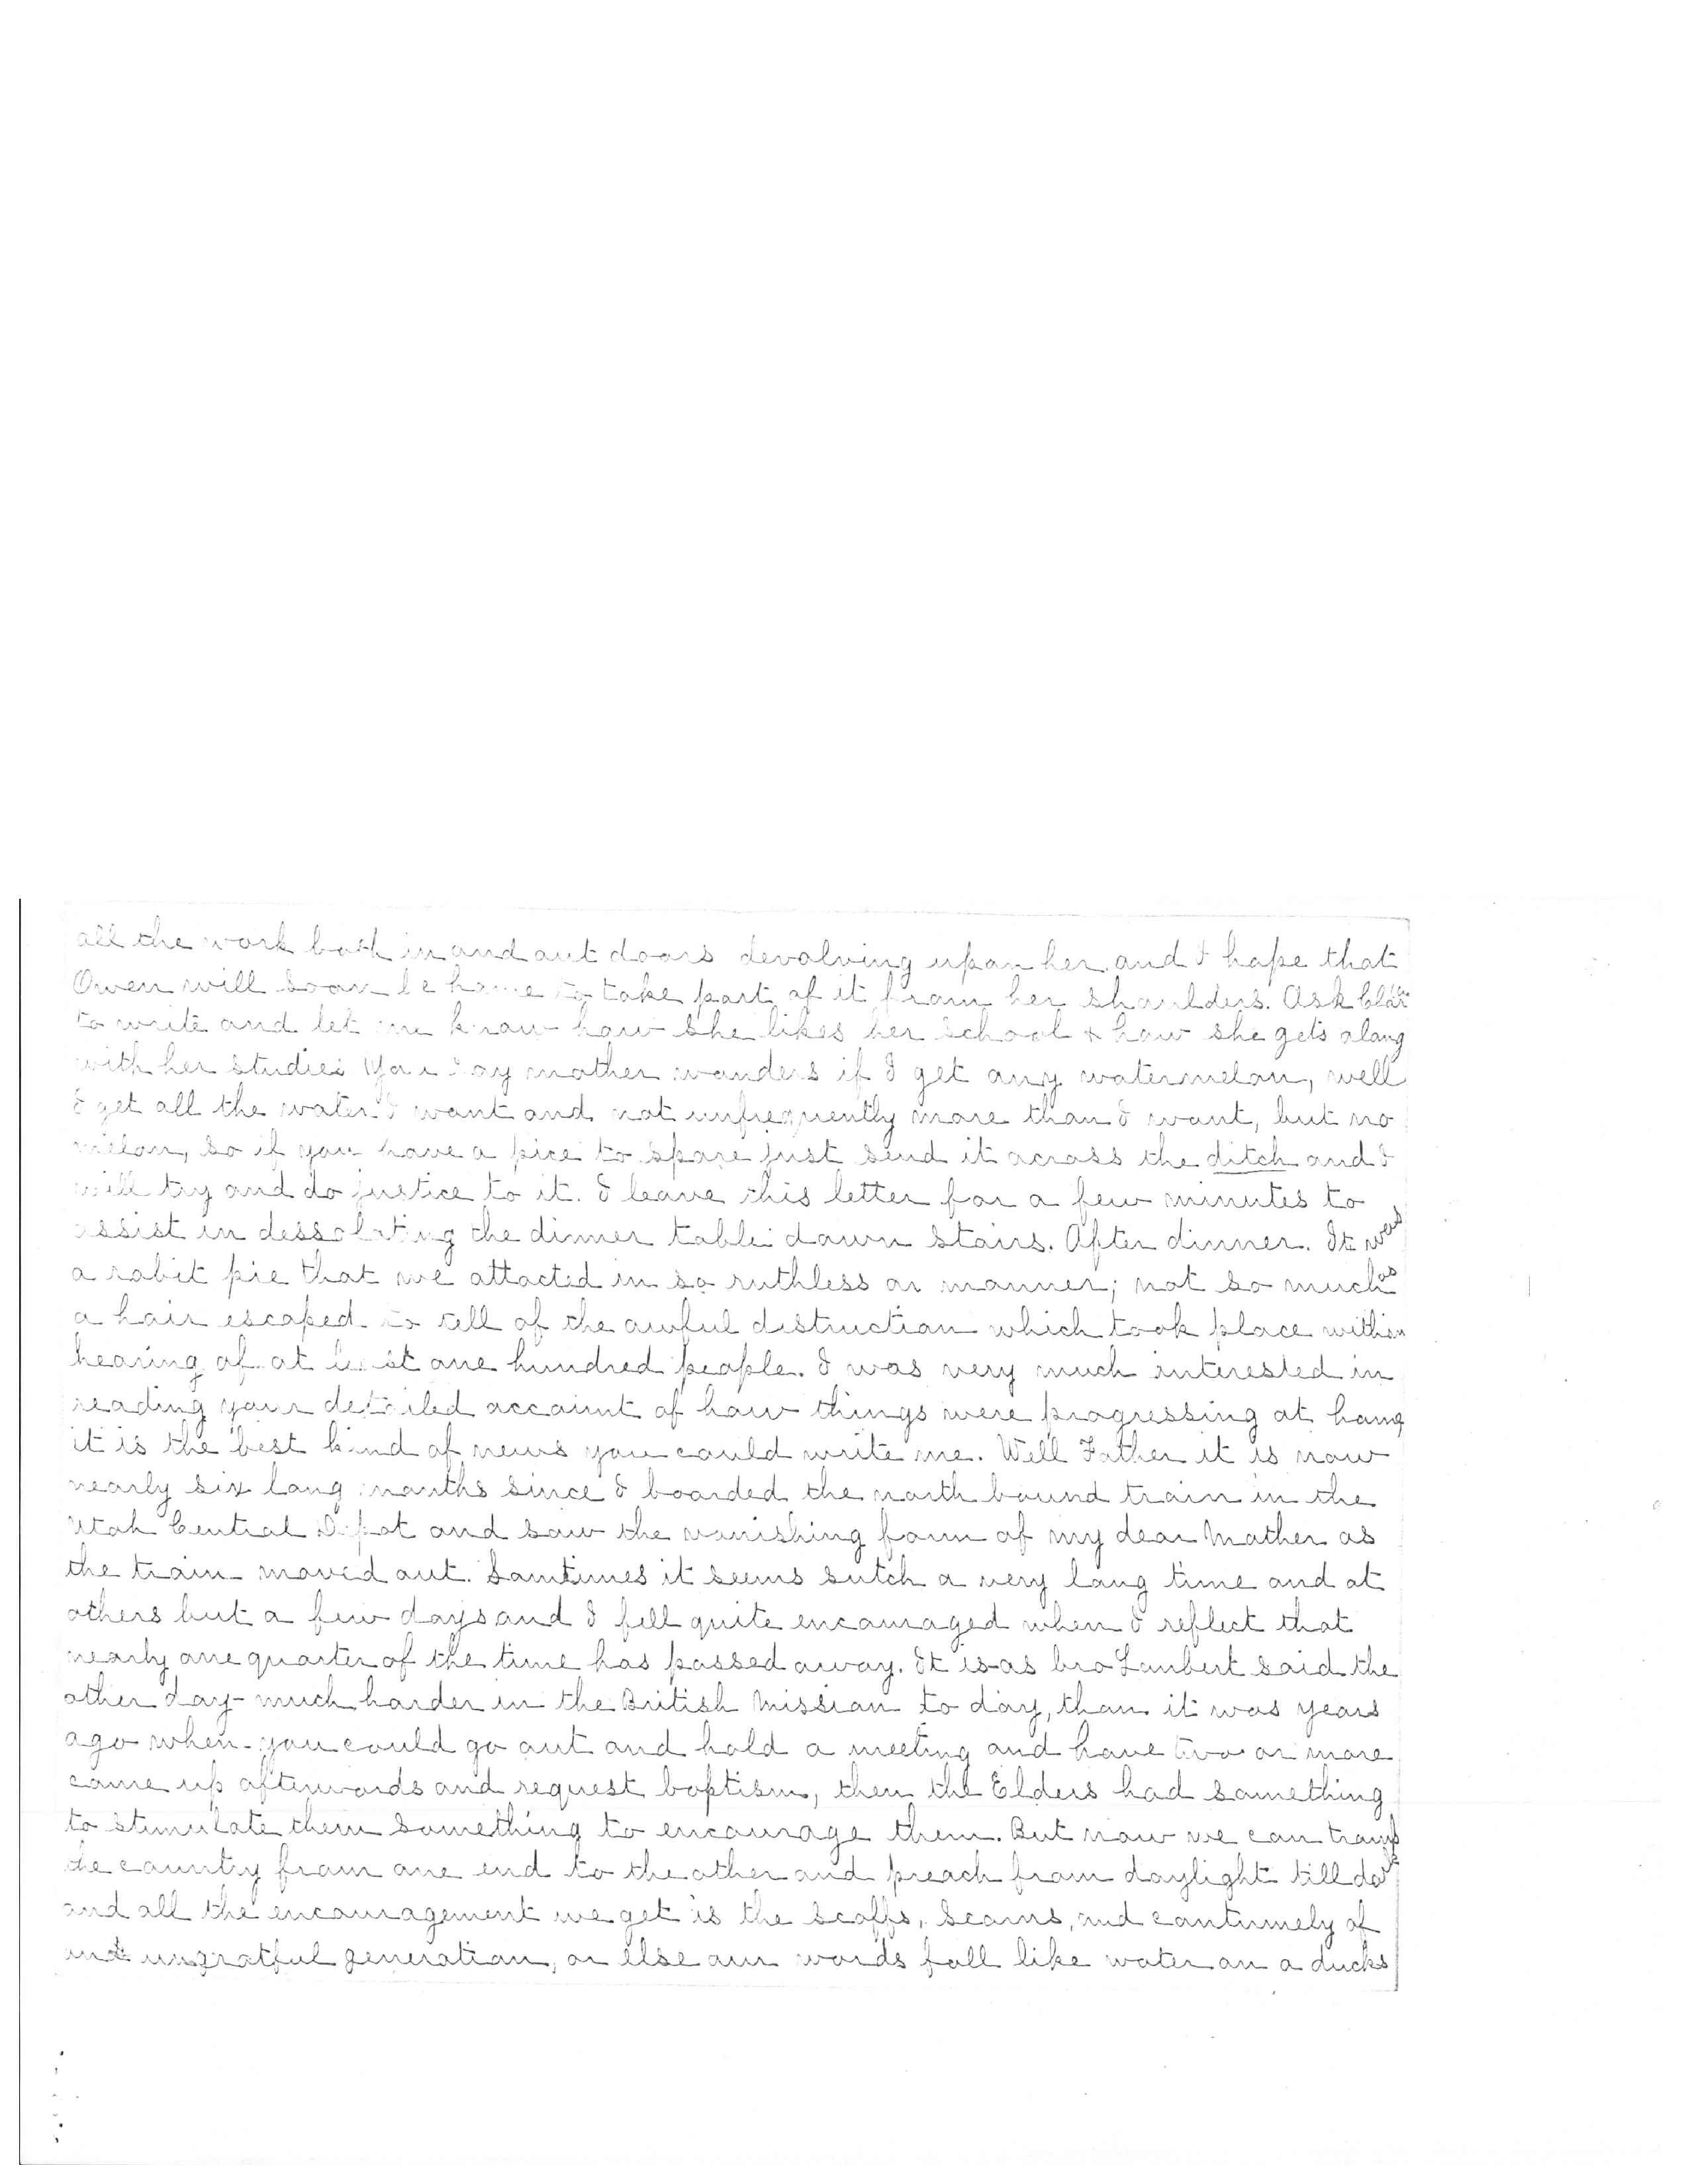 all the work both in and out doors devolving upon her and I hope that
Owen will soon be home to take part of it from her shoulders. Ask Clara
to write and let me know how she likes her School & how she gets along
with her studies You say mother wonders if I get any watermelon, well
I get all the water I want and not unfrequently more than I want, but no
melon, so if you have a pice to spare just send it across the ditch and I
will try and do justice to it. I leave this letter for a few minutes to
assist in dessolating the dinner table down stairs. After dinner. It was
a rabit pie that we attacted in so ruthless a manner; not so much as
a hair escaped to tell of the awful distruction which took place within
hearing of at least one hundred people. I was very much interested in
reading your detailed account of how things were progressing at home
it is the best kind of news you could write me. Well Father it is now
nearly six long months since I boarded the north bound train in the
Utah Central Depot and saw the vanishing form of my dear Mother as
the train moved out. Somtimes it seems sutch a very long time and at
others but a few days and I fell quite encouraged when I reflect that
nearly one quarter of the time has passed away. It is as bro Lambert said the
other day - much harder in the British Mission to day, than it was years
ago when you could go out and hold a meeting and have two or more
come up afterwards and request baptism, then the Elders had something
to stimulate them something to encourage them. But now we can tramp
the country from one end to the other and preach from daylight till
and all the encouragement we get is the scoffs, scorns, and contumely of
ungratful generation, or else our words fall like water on a ducks